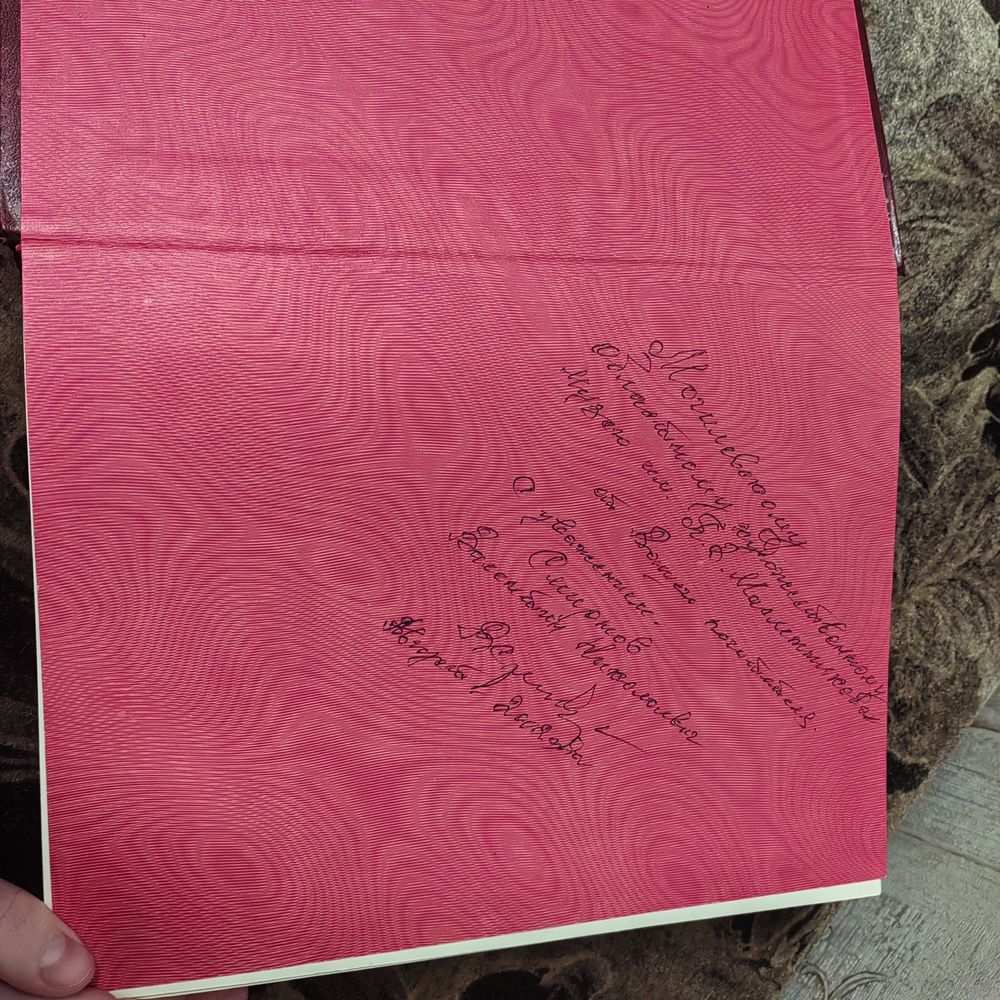 Могилевскому
областному художественному
музею им. П. Е. Масленикова
от Вашего почитателя.
С уважением.
Смирнов
Валентин Николаевич
Апрель